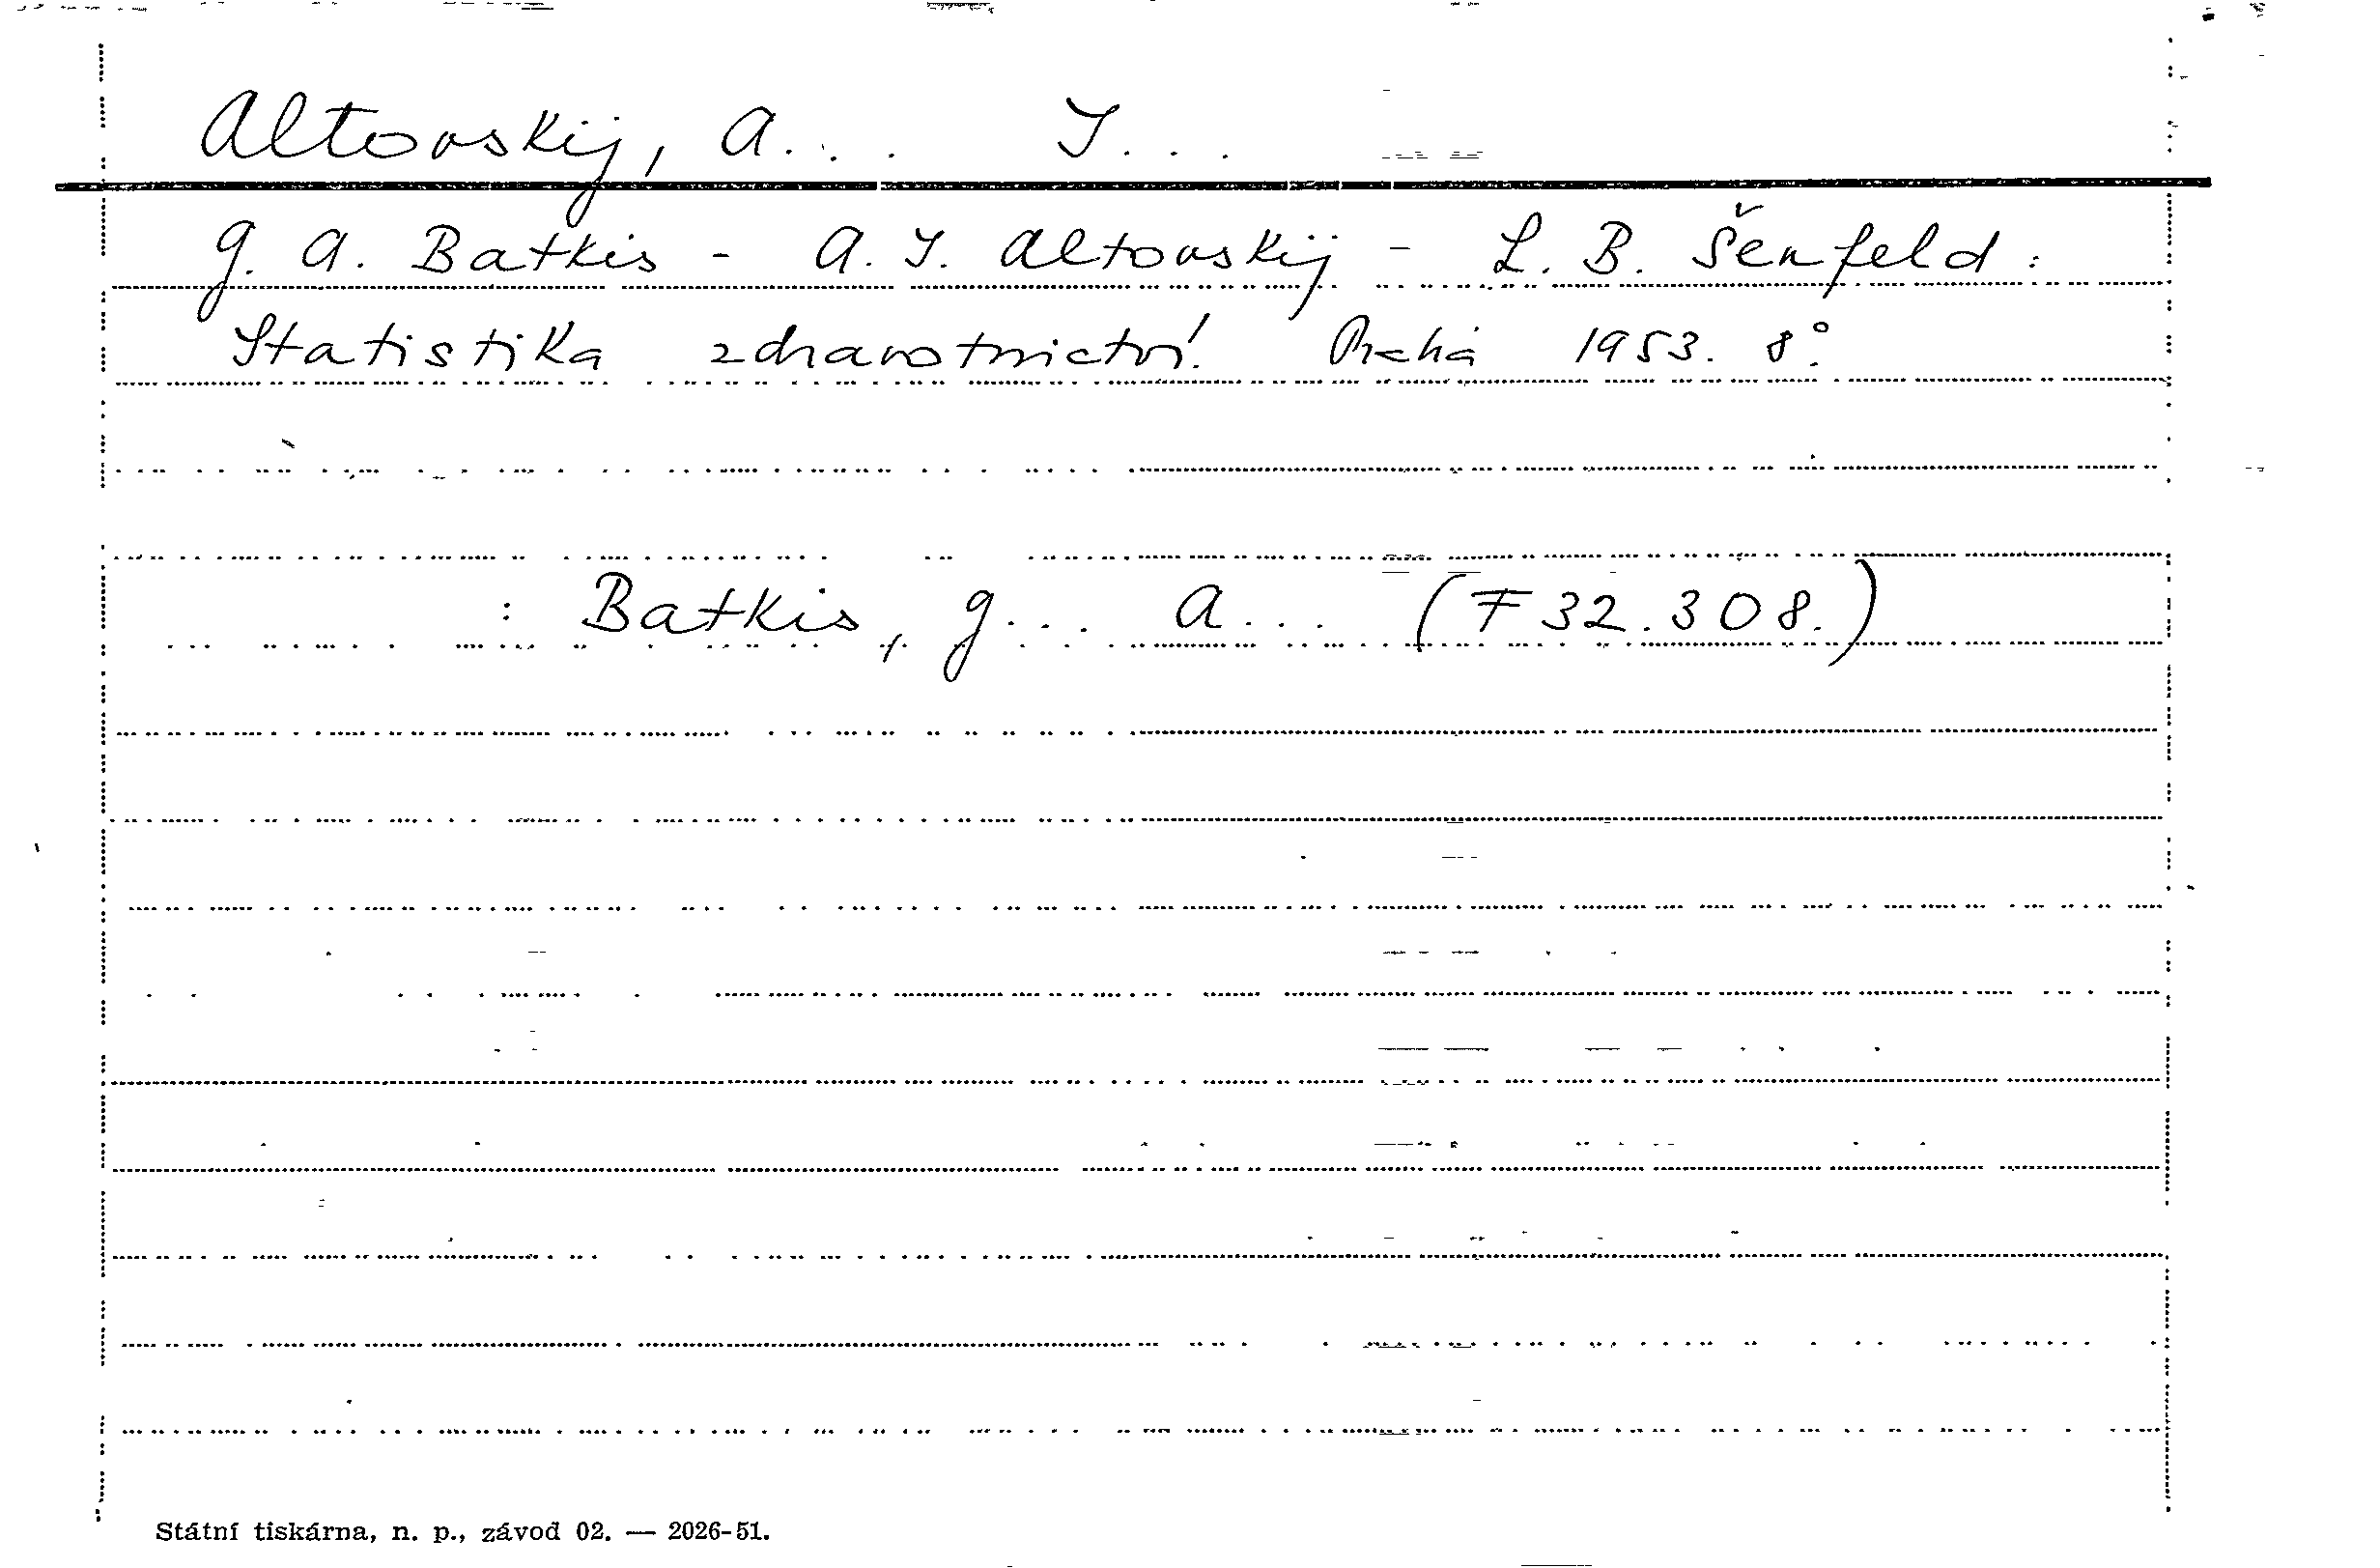 Altovskij, A... I...
G. A. Batkis - A. I. Altovskij - L. B. Šenfeld:
Statistika zdravotnictví. Praha 1953. 8°.
: Batkis, G... A... (F 32.308.)
Státní tiskárna, n. p., závod 02. — 2026-51.